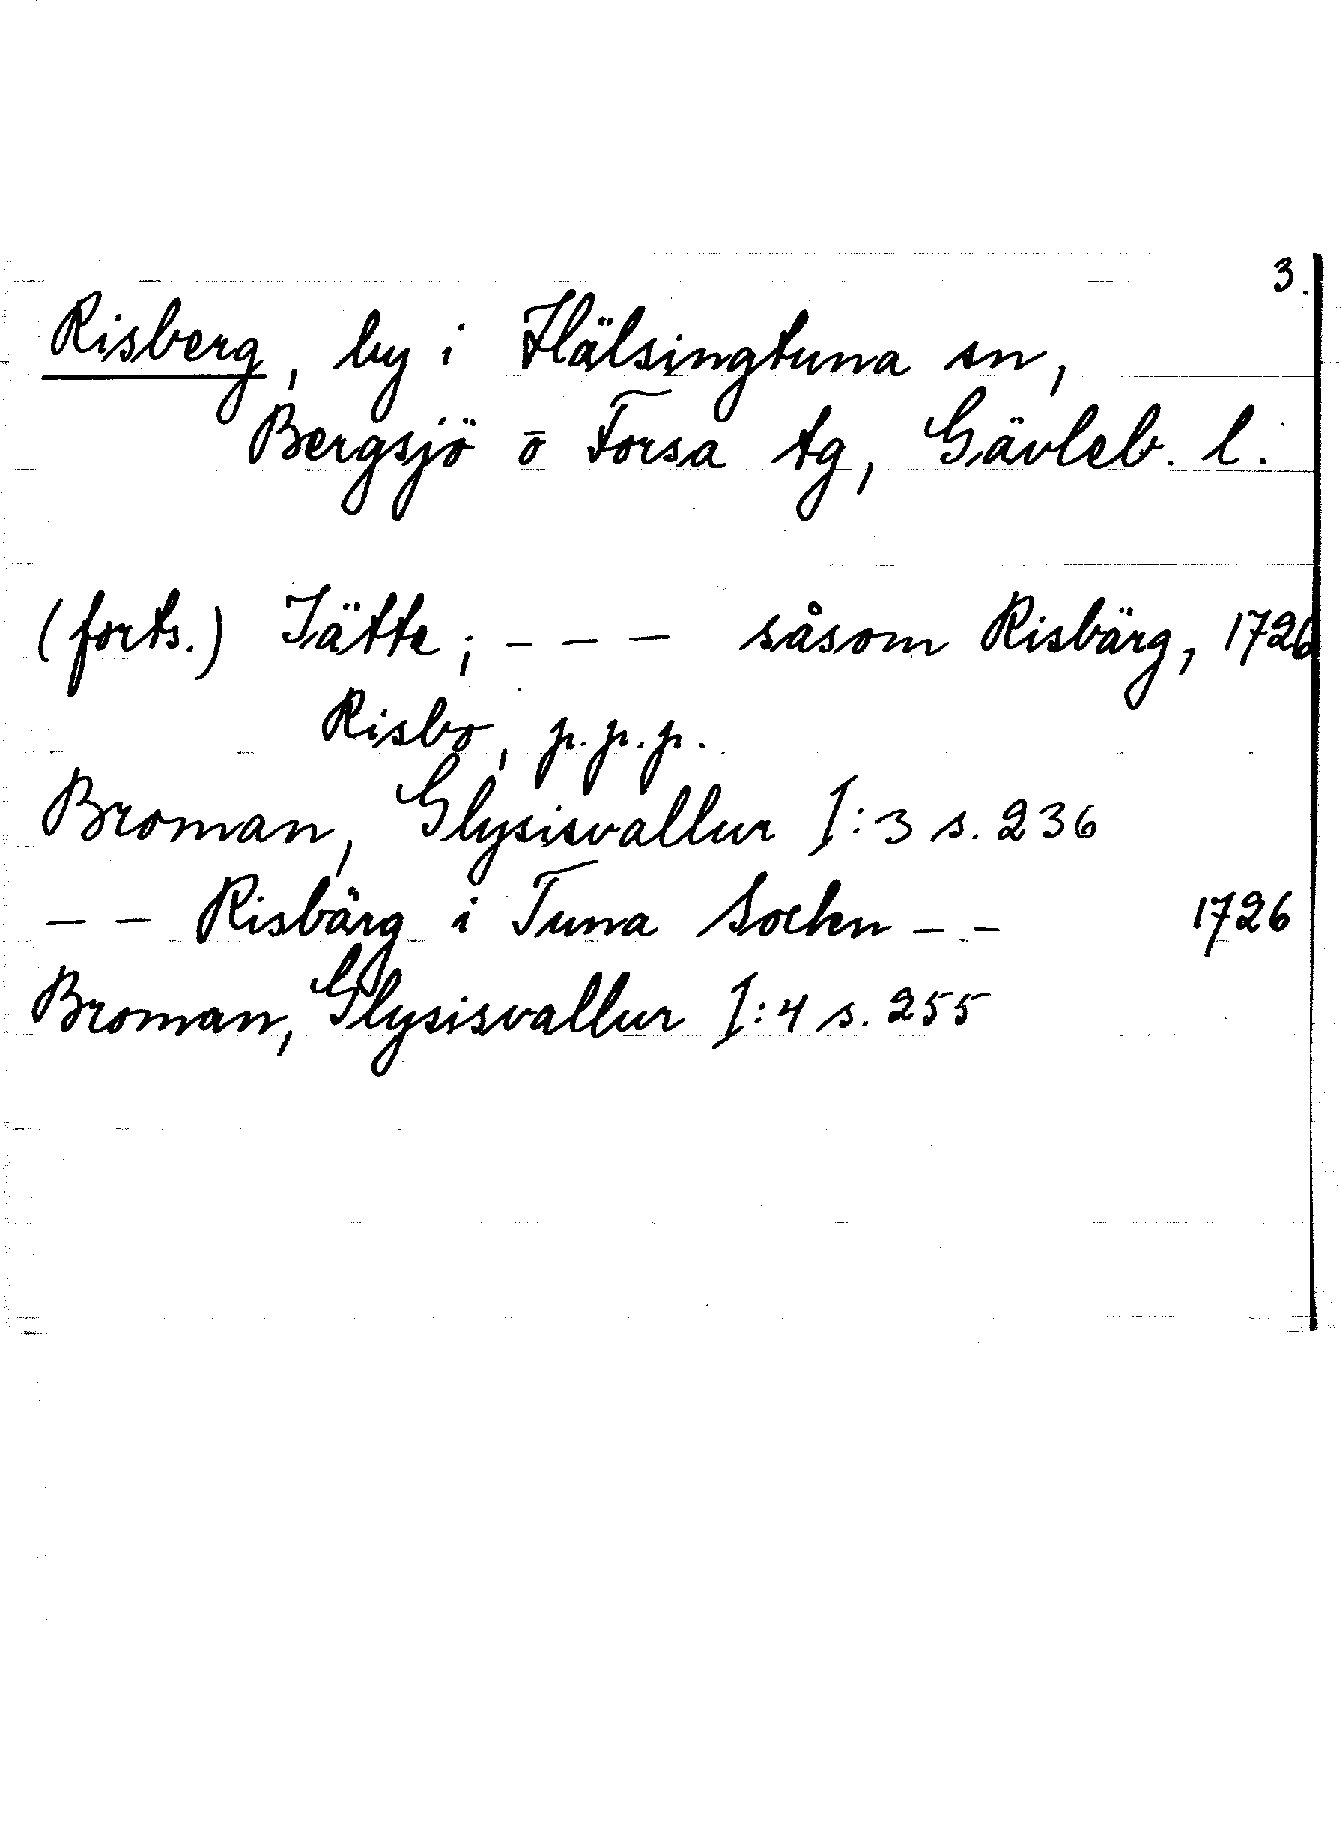 3.
Risberg, by i Hälsingtuna sn,
Bergsjö o Forsa tg, Gävleb. l.
(forts.) Jätte; - - - såsom Risbärg, 1726
Risbo, p.p.p.
Broman, Glysisvallur I:3 s. 236
- - Risbärg i Tuna Sockn - - 1726
Broman, Glysisvallur I:4 s. 255